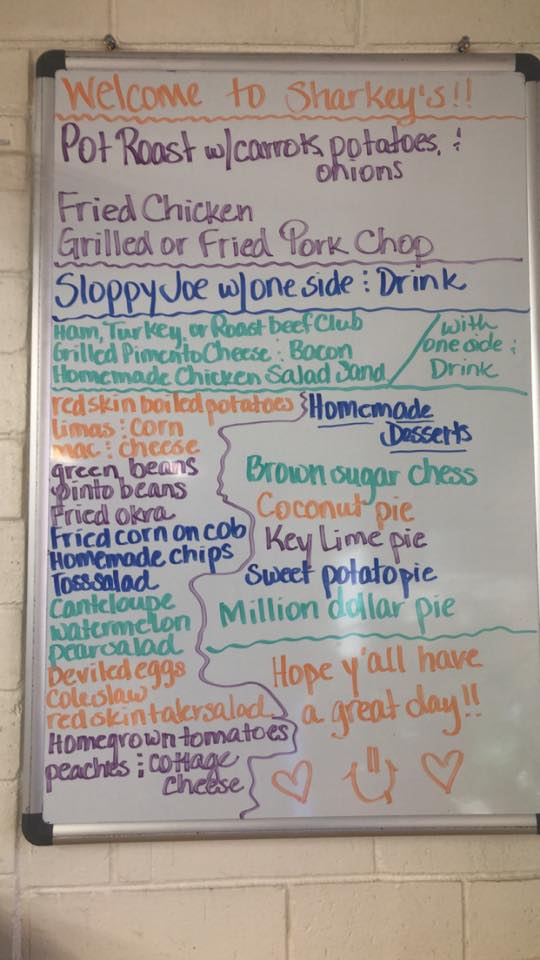 Welcome to Sharkey's!!
Pot Roast w/carrots, potatoes, &
onions
Fried Chicken
Grilled or Fried Pork Chop
Sloppy Joe w/one side & Drink
Ham, Turkey, or Roast beef Club
Grilled Pimento Cheese & Bacon
Homemade Chicken Salad Sand
With
one side &
Drink
red skin boiled potatoes
limas & corn
mac & cheese
green beans
pinto beans
Fried okra
Fried corn on cob
Homemade chips
Toss salad
Canteloupe
watermelon
pear salad
Deviled eggs
Coleslaw
red skin tater salad
Homegrown tomatoes
peaches & cottage
cheese
Homemade
Desserts
Brown sugar chess
Coconut pie
Key Lime pie
Sweet potato pie
Million dollar pie
Hope y'all have
a great day!!